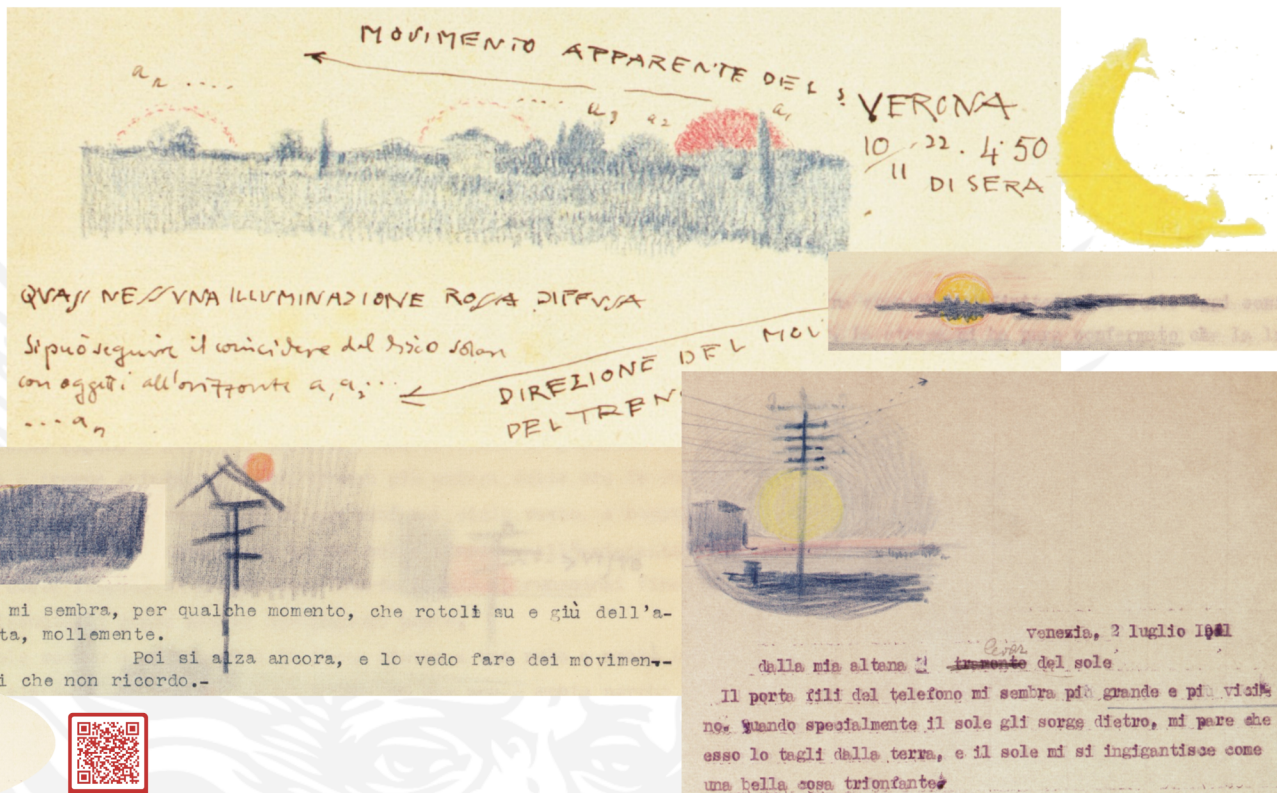 MOVIMENTO APPARENTE DEL S
aₙ ....
....
a₃ a₂ a₁
VERONA
10/11 22. 4.50
DI SERA
QUASI NESSUNA ILLUMINAZIONE ROSSA DIFFUSA
Si può seguire il coincidere del disco solare
con oggetti all'orizzonte a₁ a₂ ...
... aₙ
DIREZIONE DEL MOV
DEL TREN
mi sembra, per qualche momento, che rotoli su e giù dell'a-
ta, mollemente.
Poi si alza ancora, e lo vedo fare dei movimen--
i che non ricordo.-
venezia, 2 luglio
levar
dalla mia altana il tramonto del sole
Il porta fili del telefono mi sembra più grande e più vici
no. Quando specialmente il sole gli sorge dietro, mi pare che
esso lo tagli dalla terra, e il sole mi si ingigantisce come
una bella cosa trionfante